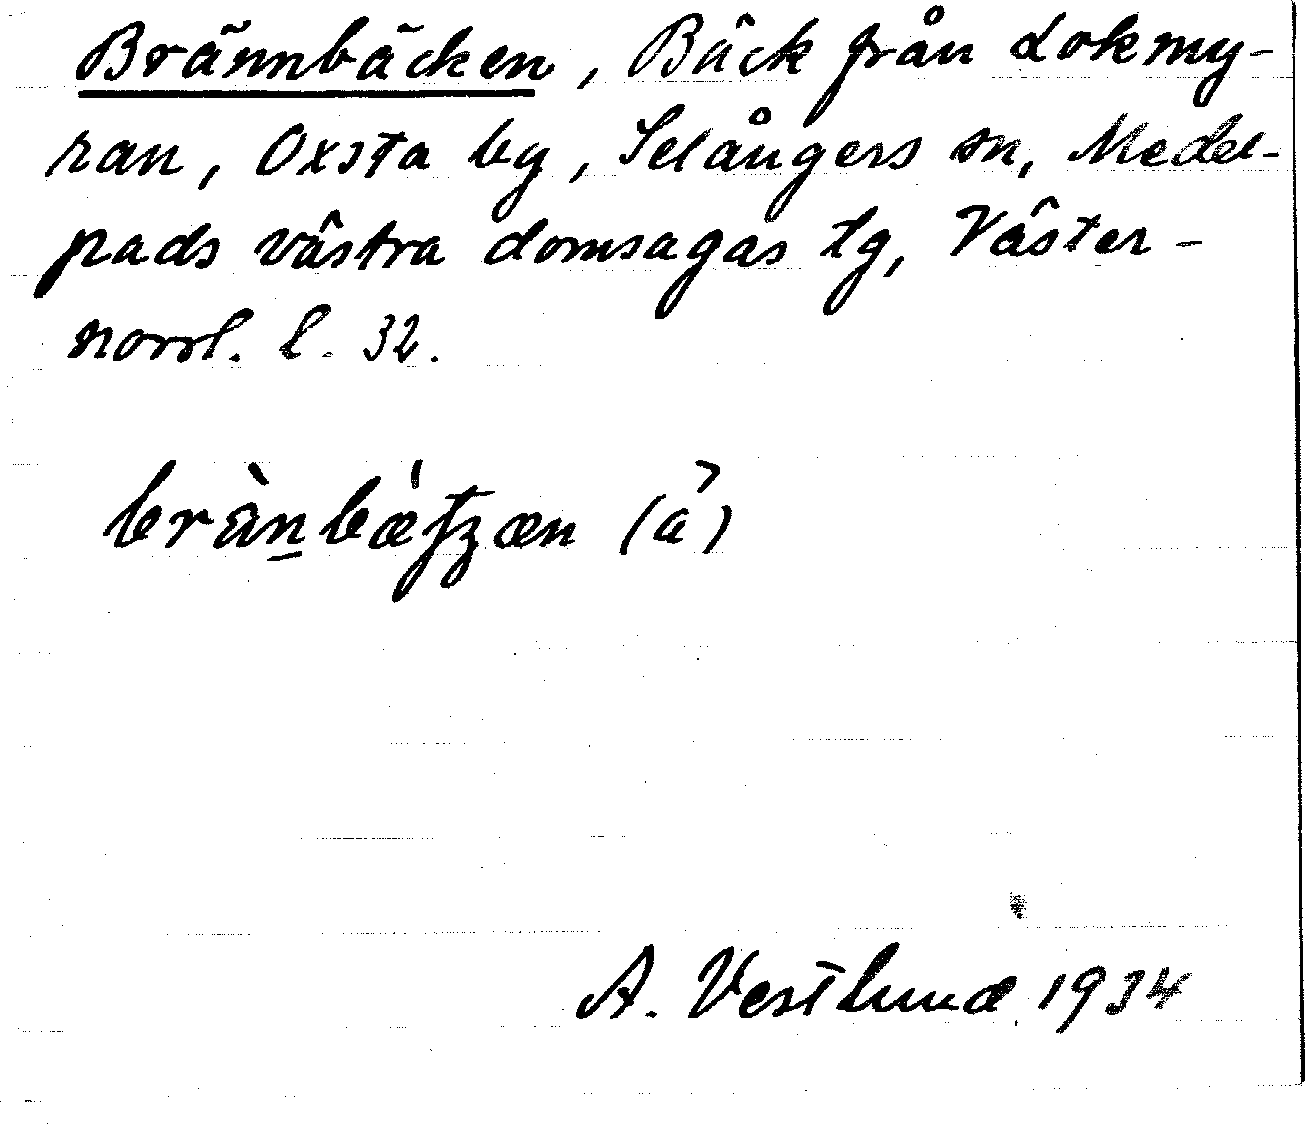 Brännbäcken, Bäck från Lokmy-
ran, Oxsta by, Selångers sn, Medel-
pads västra domsagas tg, Väster-
norrl. l. 32.
brä̀n̲bæ̀tʒæn (å)
A. Vestlund 1934